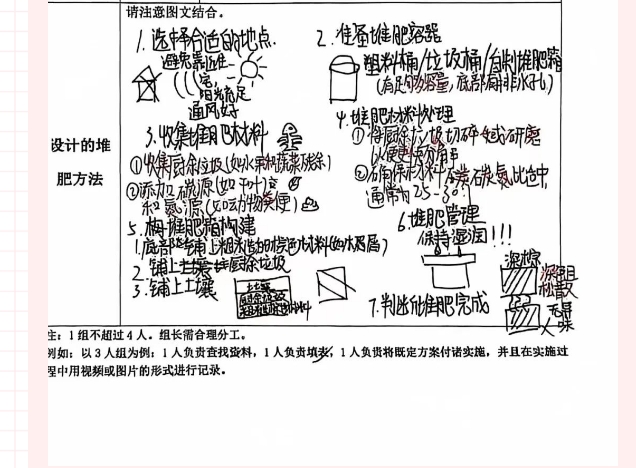 请注意图文结合。
设计的堆
肥方法
1. 选择合适的地点.
避免靠近住
宅,
阳光充足
通风好
2. 准备堆肥容器
塑料桶/垃圾桶/自制堆肥箱
(有足够容量,底部有排水孔).
3. 收集堆肥材料
①收集厨余垃圾(如水果和蔬菜残余)
②添加碳源(如干叶)
和氮源(如动物粪便)
4. 堆肥材料处理
①将厨余垃圾切碎或研磨
以便更快分解
②确保材料碳氮比适中,
通常为25-30:1
5. 构堆肥箱构建
1. 底部铺上粗糙的棕色材料(如木屑)
2. 铺上厨余垃圾
3. 铺上土壤
土壤
厨余垃圾
6. 堆肥管理
保持湿润!!!
7. 判断堆肥完成
深棕
松散
无异
味
注:1 组不超过 4 人。组长需合理分工。
例如:以 3 人组为例:1 人负责查找资料,1 人负责填表,1 人负责将既定方案付诸实施,并且在实施过
程中用视频或图片的形式进行记录。